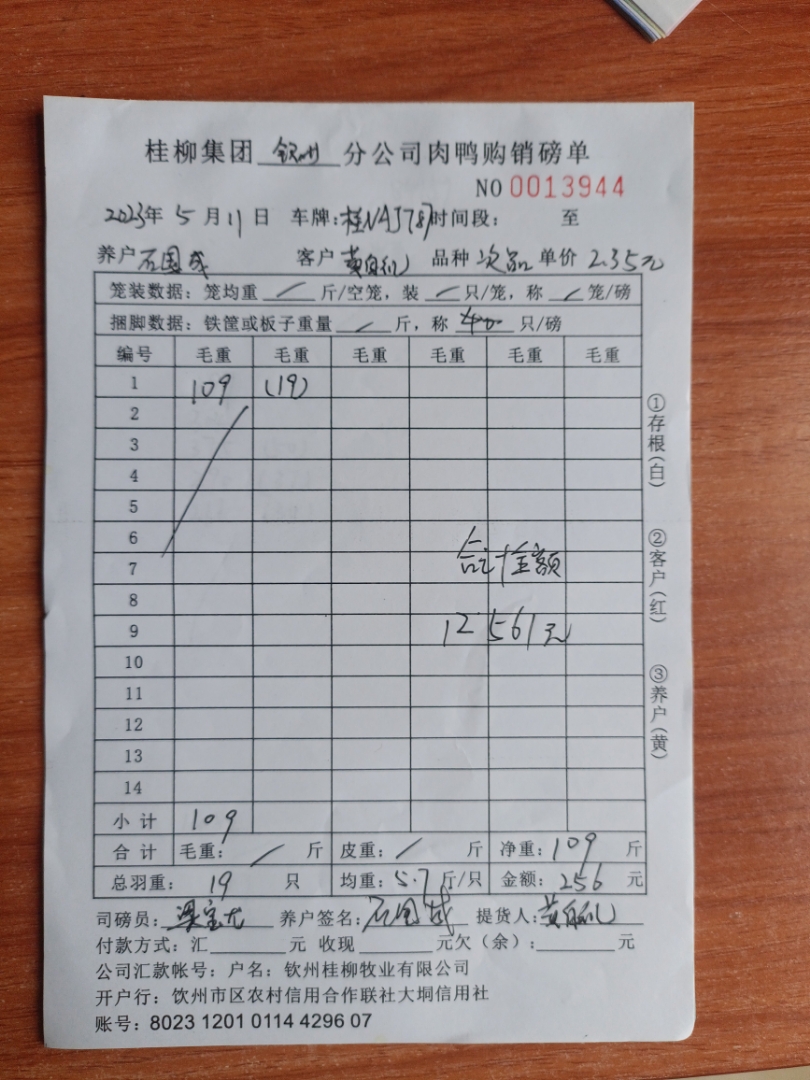 桂柳集团 钦州 分公司肉鸭购销磅单
NO 0013944
2023年 5 月 11 日 车牌:桂NAJ787 时间段: 至
养户 石国成 客户 品种 次品 单价 2.35元
笼装数据: 笼均重 / 斤/空笼, 装 / 只/笼, 称 / 笼/磅
捆脚数据: 铁筐或板子重量 / 斤, 称 只/磅
编号 毛重 毛重 毛重 毛重 毛重 毛重
1 109 (19)
2
3
4
5
6
7 合计金额
8
9 12561元
10
11
12
13
14
小计 109
合计 毛重: / 斤 皮重: / 斤 净重: 109 斤
总羽重: 19 只 均重: 5.7 斤/只 金额: 256 元
司磅员: 养户签名: 石国成 提货人:
付款方式: 汇 元 收现 元欠(余): 元
公司汇款帐号: 户名: 钦州桂柳牧业有限公司
开户行: 饮州市区农村信用合作联社大垌信用社
账号: 8023 1201 0114 4296 07
①存根(白)
②客户(红)
③养户(黄)